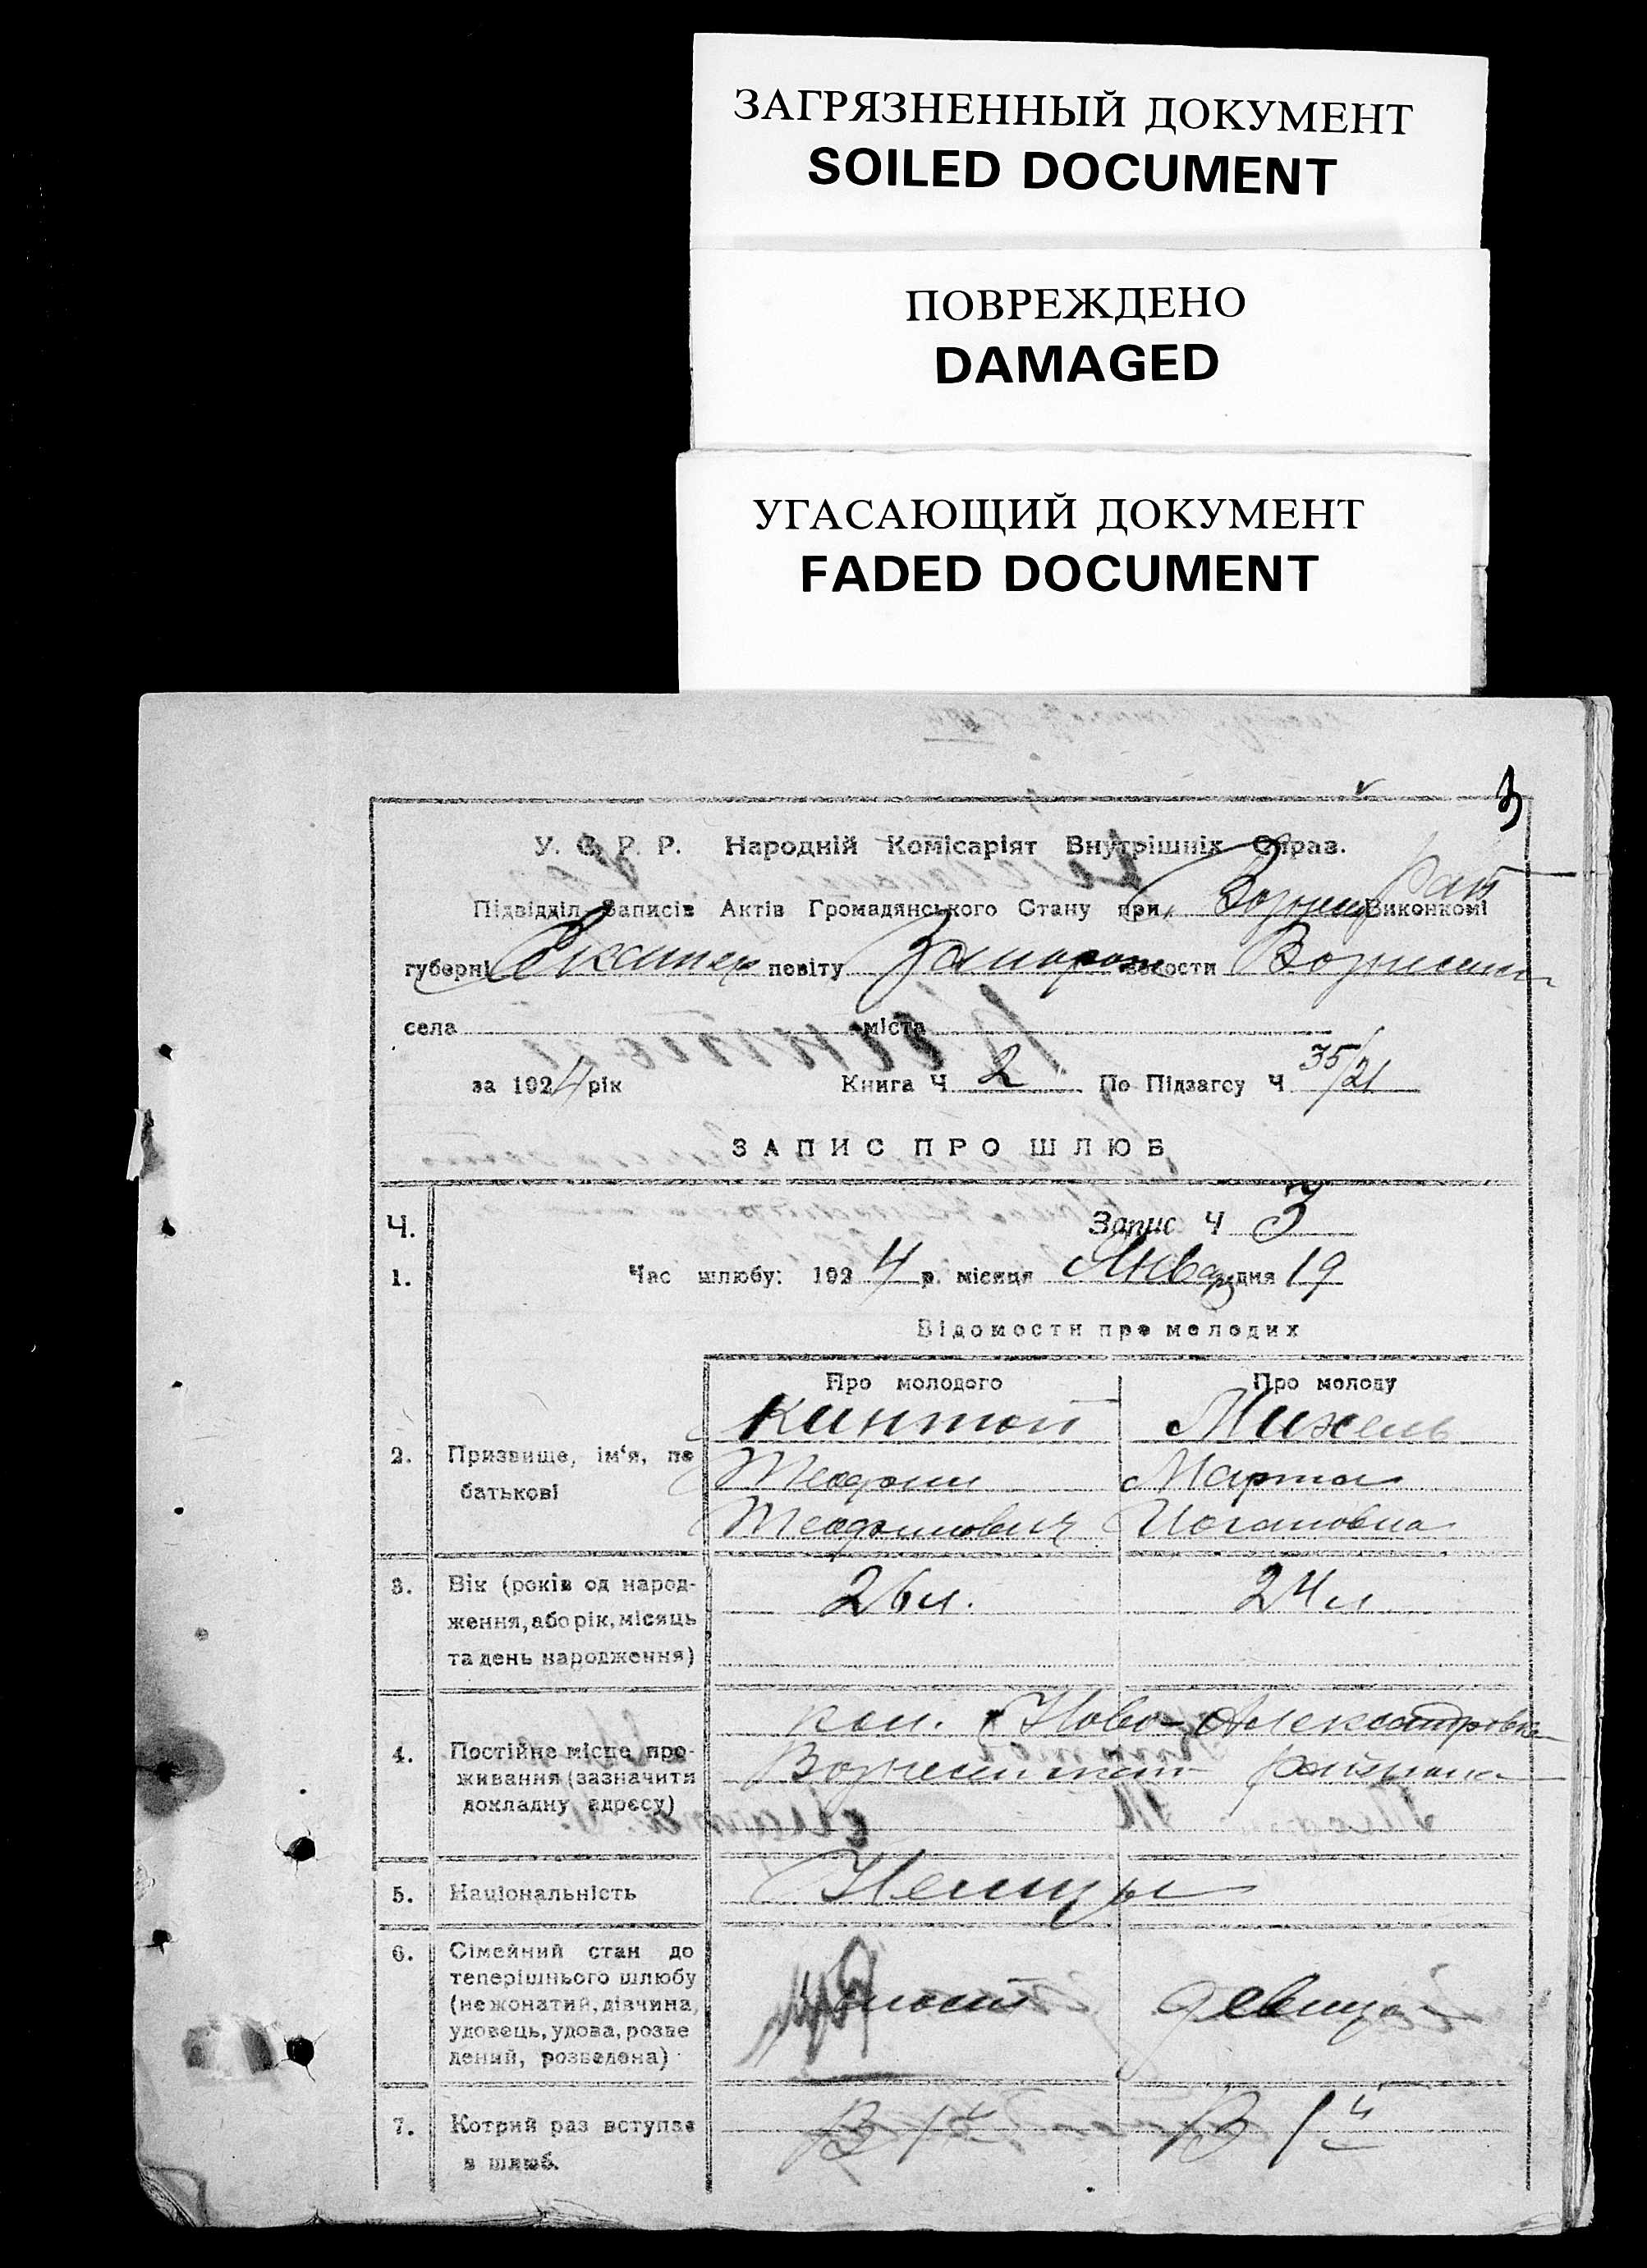 ЗАГРЯЗНЕННЫЙ ДОКУМЕНТ
SOILED DOCUMENT
ПОВРЕЖДЕНО
DAMAGED
УГАСАЮЩИЙ ДОКУМЕНТ
FADED DOCUMENT
3
У. С. Р. Р. Народній Комісаріят Внутрішніх Справ.
Підвідділ Записів Актів Громадянського Стану при Виконкомі
губерні Екатер повіту Запорож волости Вознесен
села міста
за 1924 рік Книга Ч 2 По Підзагсу Ч 35/21
ЗАПИС ПРО ШЛЮБ
Ч. Запис Ч 3
1. Час шлюбу: 1924 р. місяця Январ дня 19
Відомости про молодих
Про молодого Про молоду
2. Призвище, ім'я, по батькові
Кинтоп Михель
Теодоли Марта
Иогановна
3. Вік (років од народ-
ження, або рік, місяць
та день народження)
26 л. 24 л
4. Постійне місце про-
живання (зазначити
докладну адресу)
кол. Ново-Александровка
района
5. Національність Немцы
6. Сімейний стан до
теперішнього шлюбу
(нежонатий, дівчина,
удовець, удова, розве
дений, розведена)
холост девица
7. Котрий раз вступає
в шлюб.
В 1й В 1й